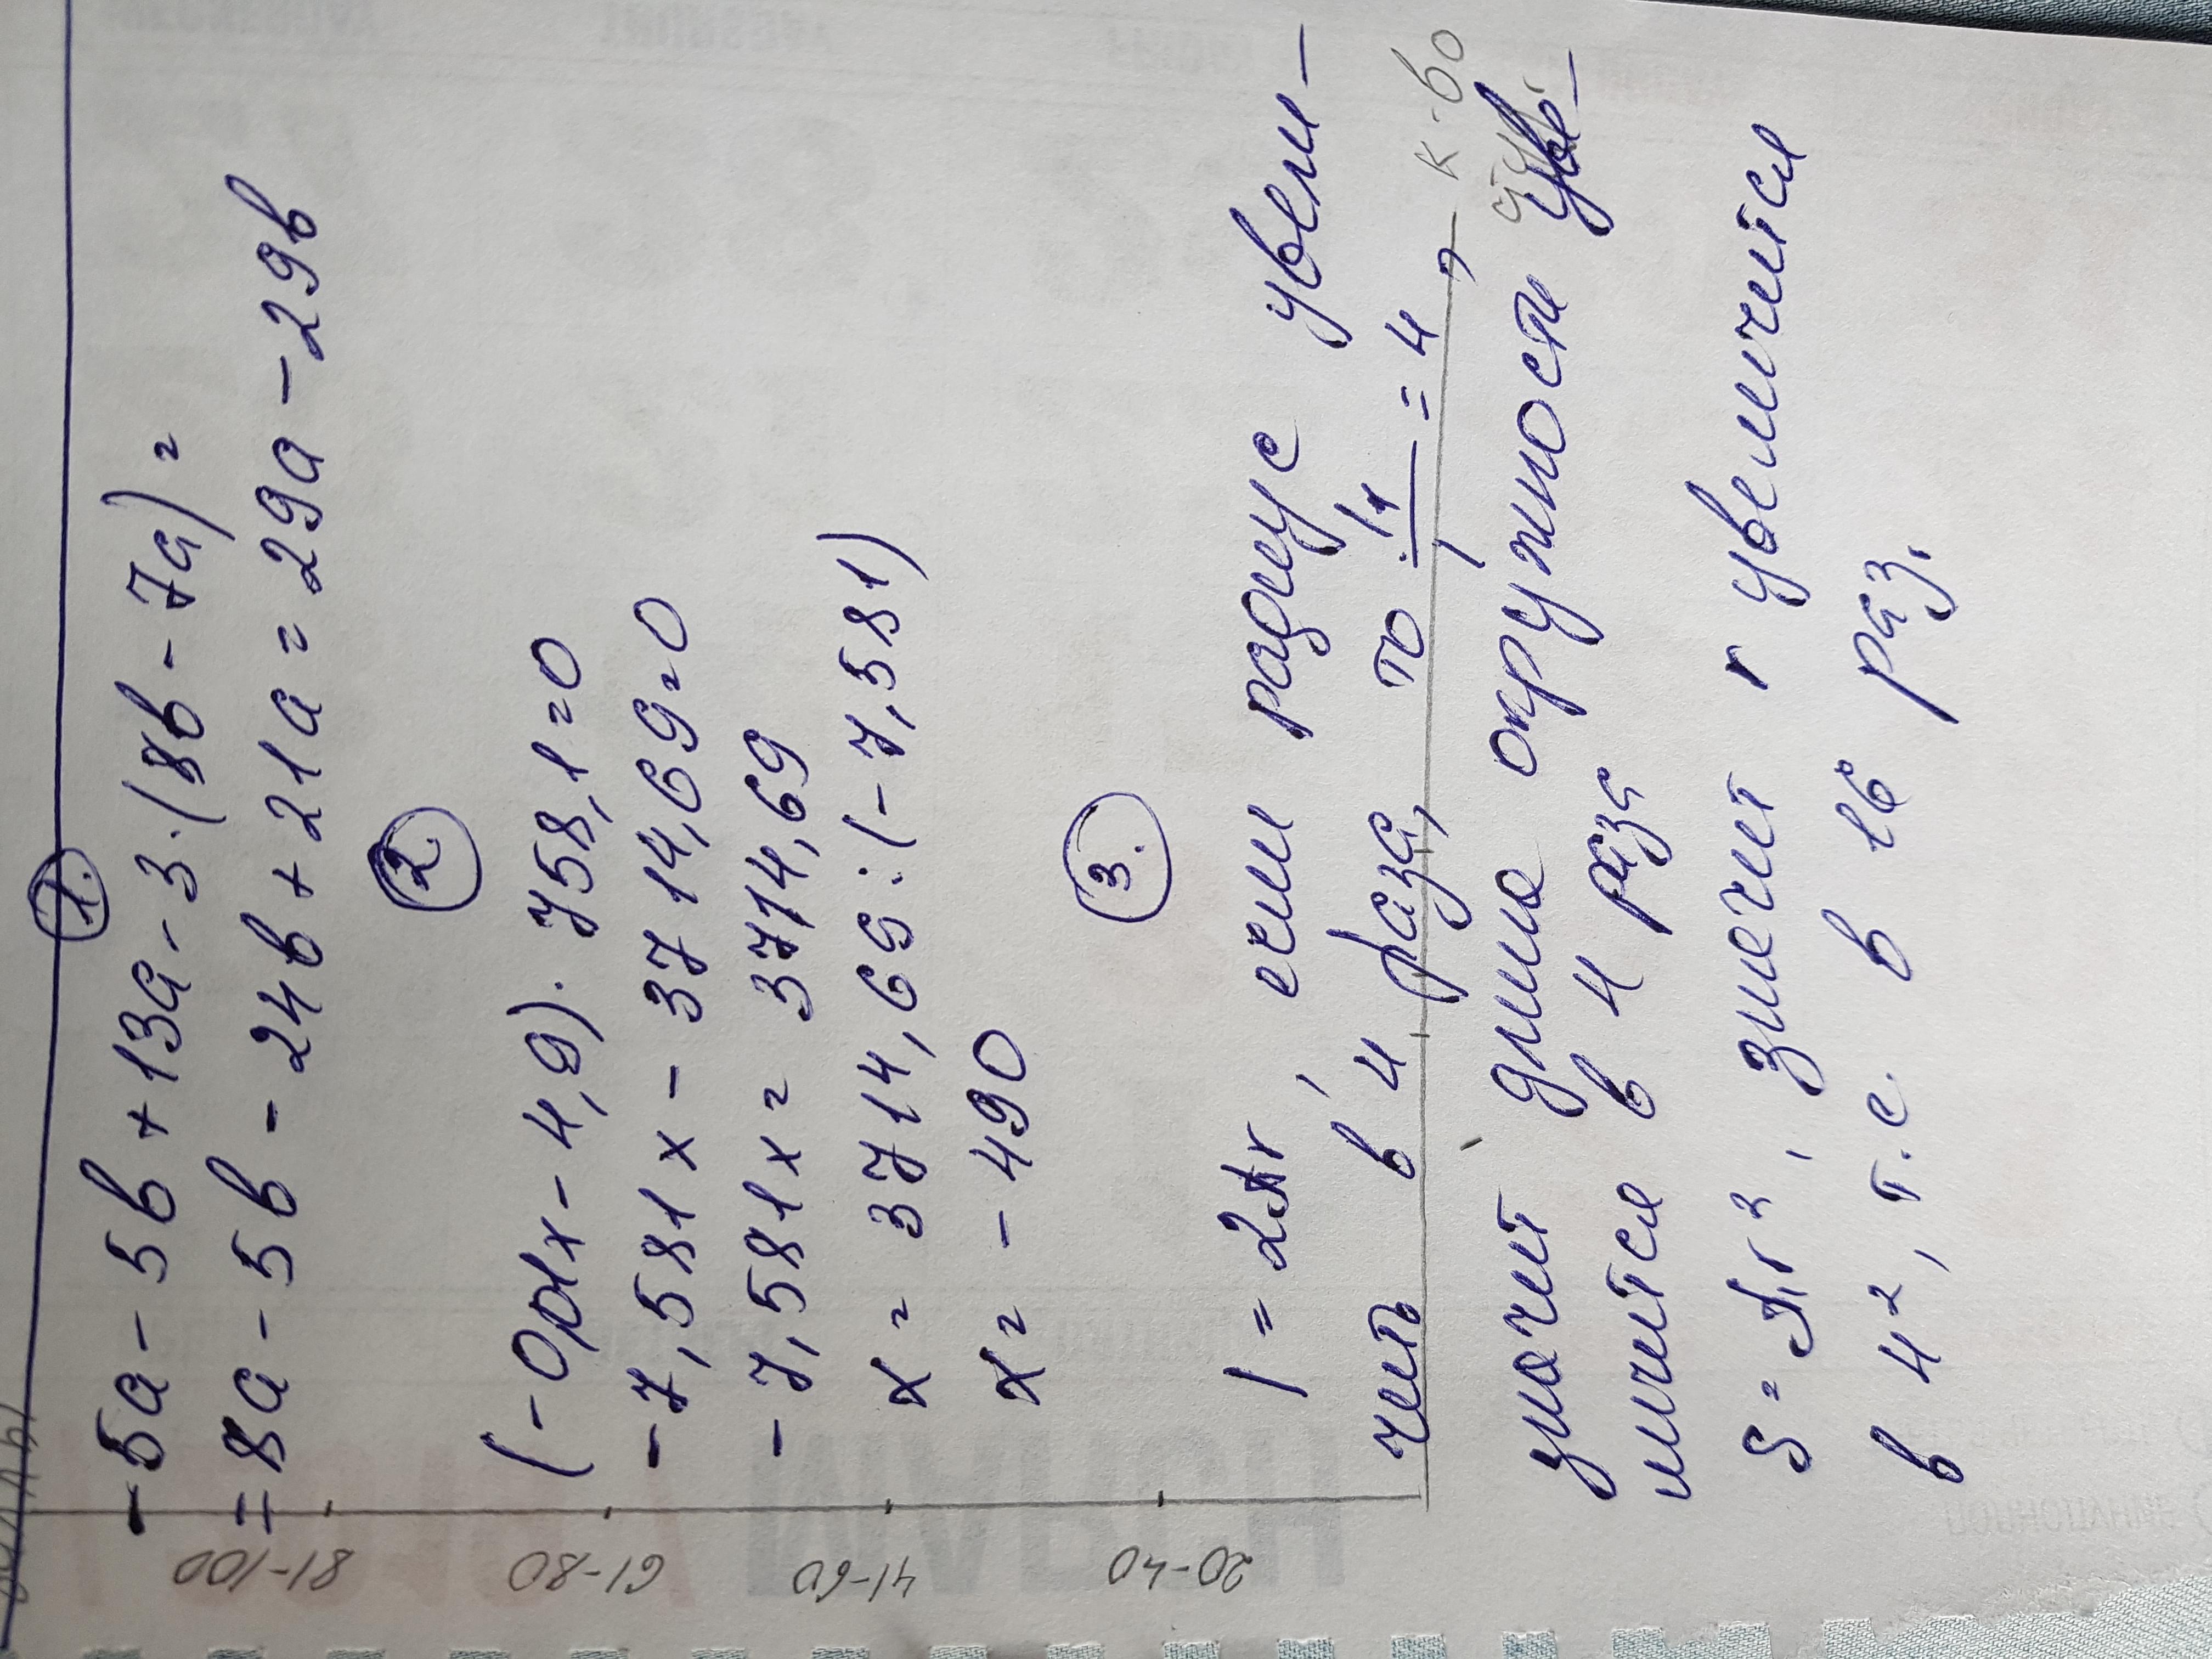 1.
-5a - 5b + 13a - 3·(8b - 7a) =
= 8a - 5b - 24b + 21a = 29a - 29b
2.
(-0,01x - 4,9)·758,1=0
-7,581x - 3714,69=0
-7,581x = 3714,69
x = 3714,69:(-7,581)
x = -490
3.
l = 2πr, если радиус увели-
чить в 4 раза, то = 4
к-во
значит длина окружности уве-
личится в 4 раза
S = πr², значит r увеличится
в 4², т.е. в 16 раз.
81-100
61-80
41-60
20-40